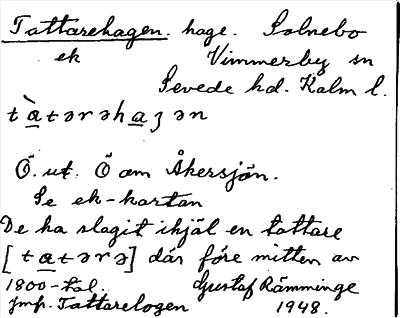 Tattarehagen. hage. Solnebo
ek Vimmerby sn
Sevede hd. Kalm l.
tàtərəhaʒən
Ö. ut. Ö om Åkersjön.
Se ek-kartan
De ha slagit ihjäl en tattare
[tatərə] där före mitten av
1800-tal. Gustaf Rämminge
Jmf. Tattarelogen 1948.